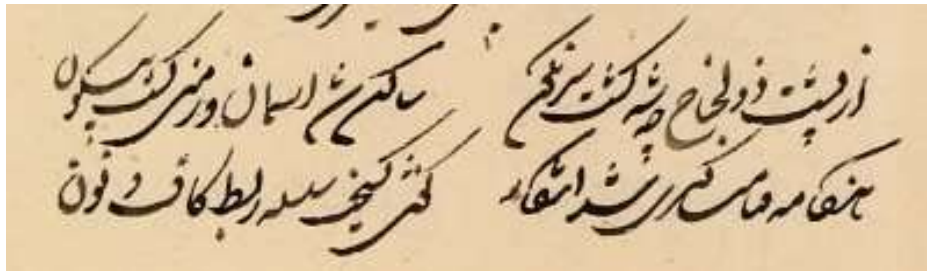 از پشت ذوالجناح چه شه کشت سرنکون ساکن شد اسمان و زمین کشت بیسکون
هنکامه قیامت کبری شد اشکار کفتی کسیخت سلسله ربط کاف و نون